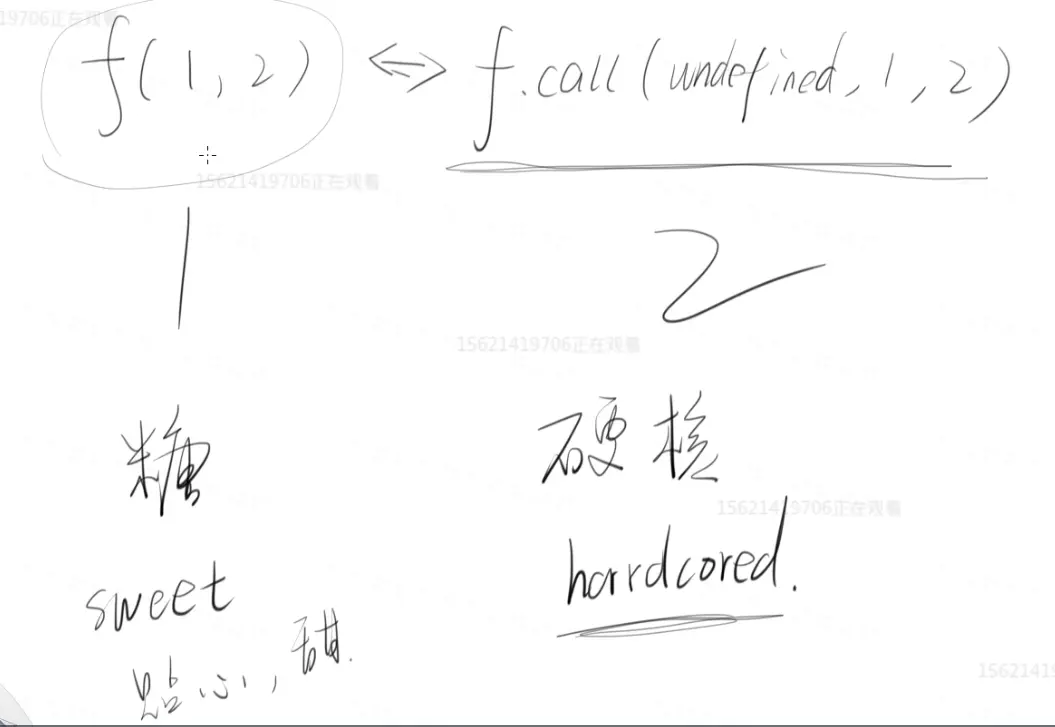 19706正在观看
f(1,2) <=> f.call(undefined,1,2)
15621419706正在观看
1 2
15621419706正在观看
糖 硬核
15621419706正在观看
hardcored.
sweet
点心,甜.
15621419